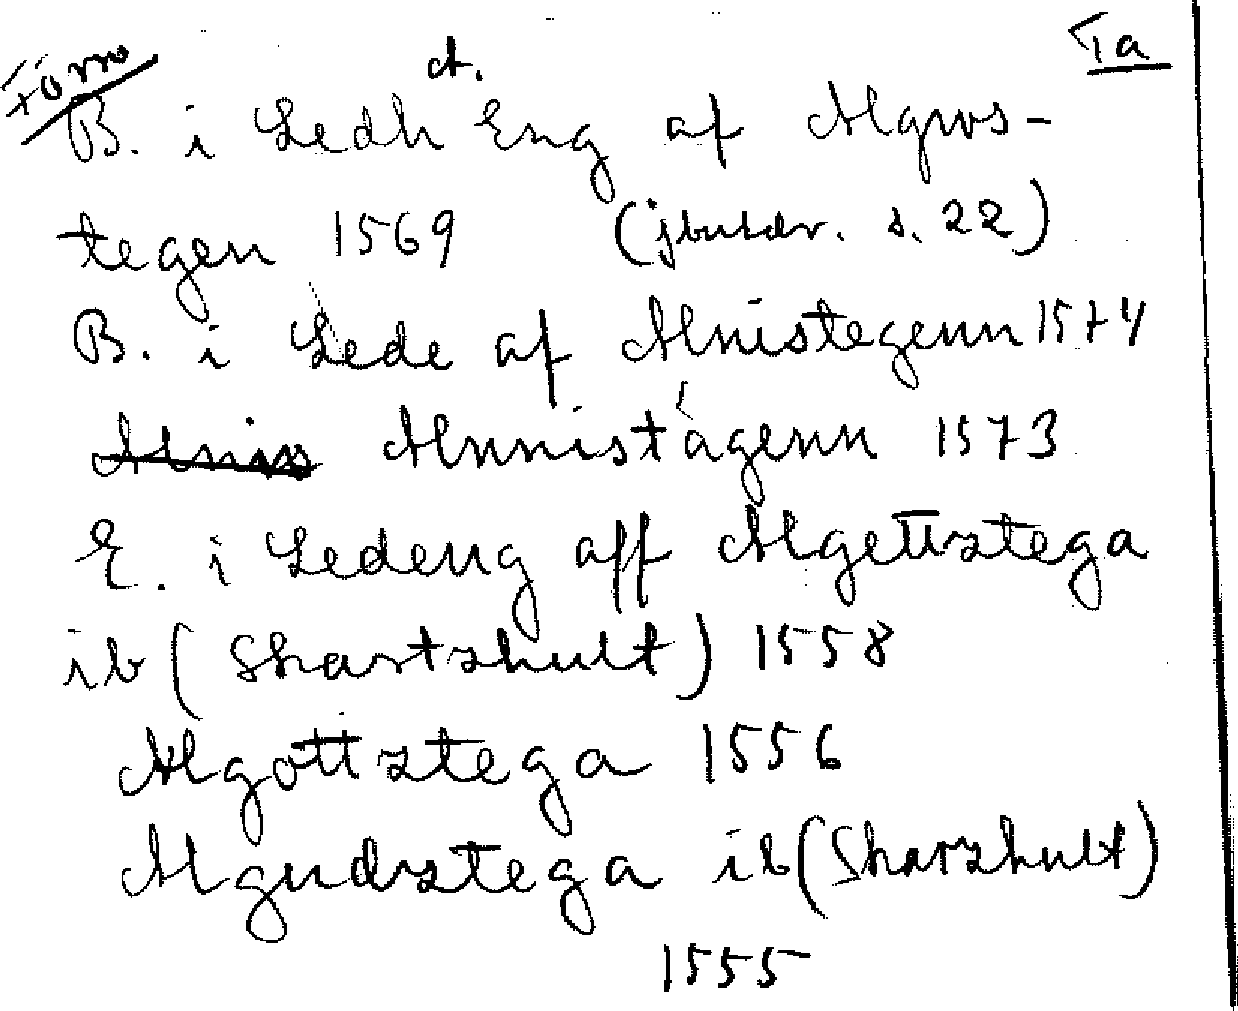 Förno Ta
B. i Ledh Eng af Algus-
tegen 1569 (jbutdr. s. 22)
B. i Lede af Alnistegenn 1574
Alnis Alnnistågenn 1573
E. i Ledeng aff Algettztega
ib (Skartzhult) 1558
Algottztega 1556
Algudztega ib (Skarzhult)
1555